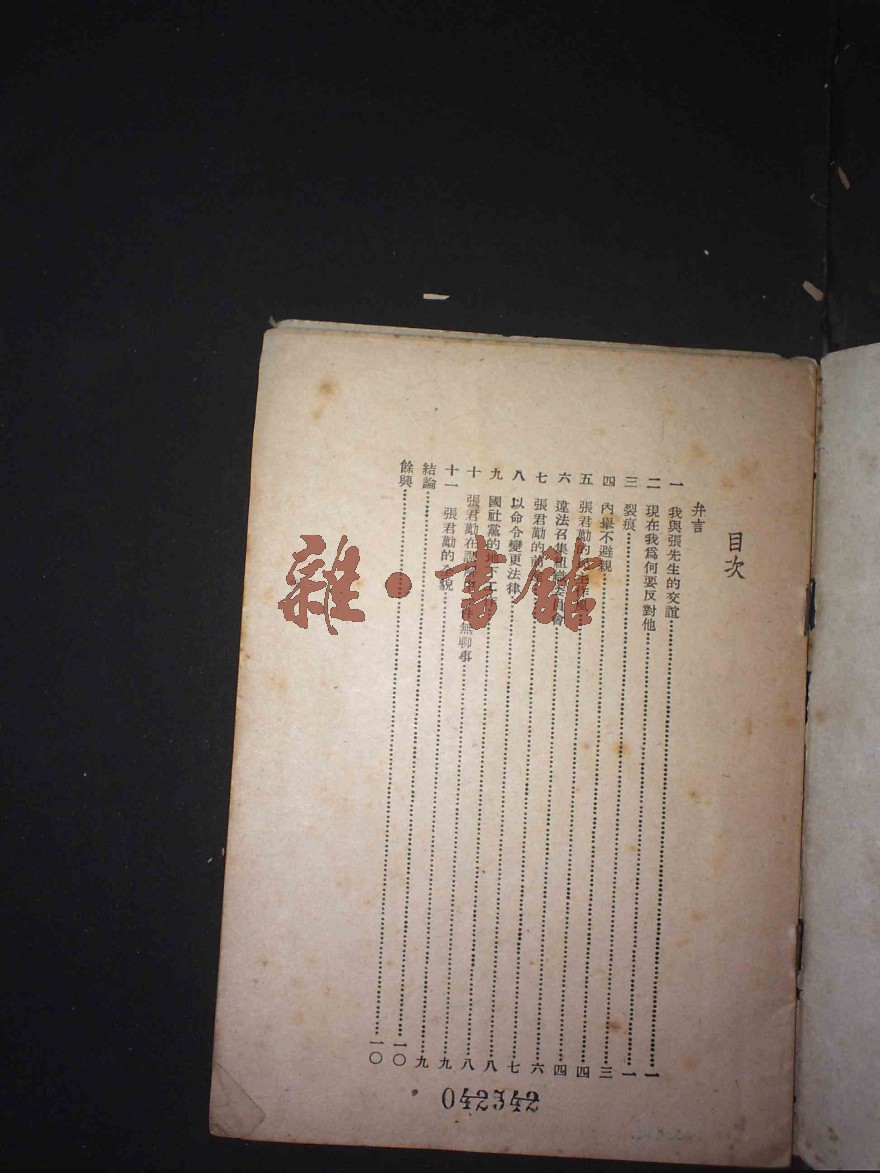 目次
弁言
一 我與張先生的交誼……一
二 現在我爲何要反對他……一
三 裂痕……三
四 內舉不避親……四
五 張君勱的……四
六 違法召集組織委員會……六
七 張君勱的前……七
八 以命令變更法律……八
九 國社黨的地下工作……八
十 張君勱在 無聊事……九
十一 張君勱的 貌……九
結論……一〇
餘興……一〇
雜·書館